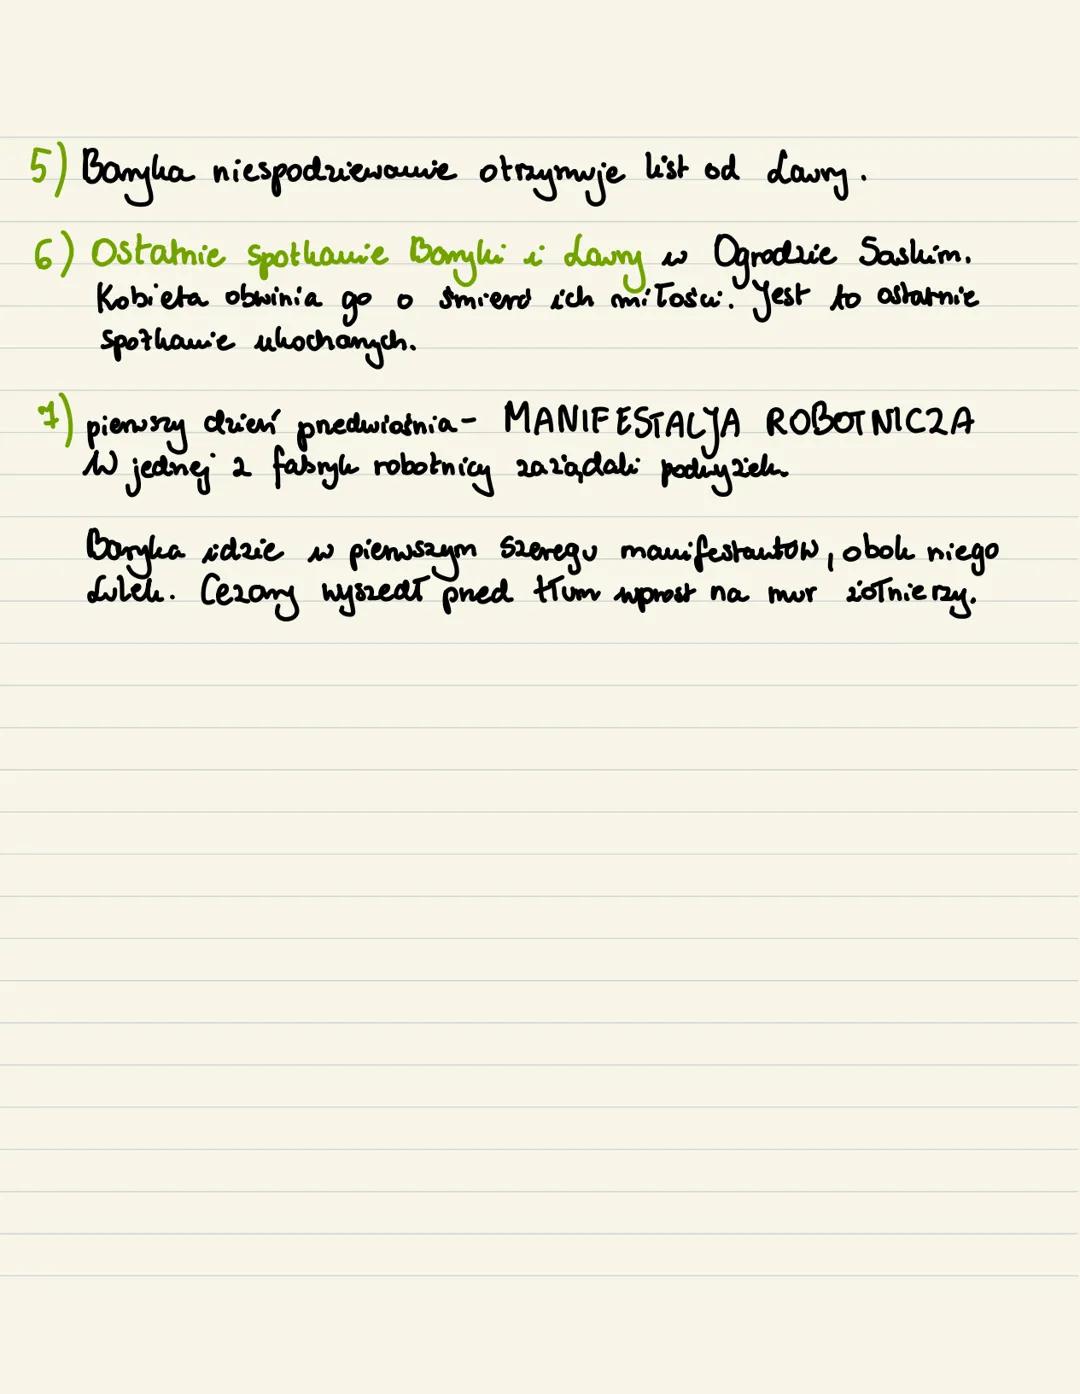 5) Baryka niespodziewanie otrzymuje list od Laury.
6) Ostatnie spotkanie Baryki i Laury w Ogrodzie Saskim.
Kobieta obwinia go o śmierć ich miłości. Jest to ostatnie
spotkanie ukochanych.
7) pierwszy dzień przedwiośnia - MANIFESTACJA ROBOTNICZA
W jednej z fabryk robotnicy zażądali podwyżek
Baryka idzie w pierwszym szeregu manifestantów, obok niego
Lulek. Cezary wyszedł przed tłum wprost na mur żołnierzy.